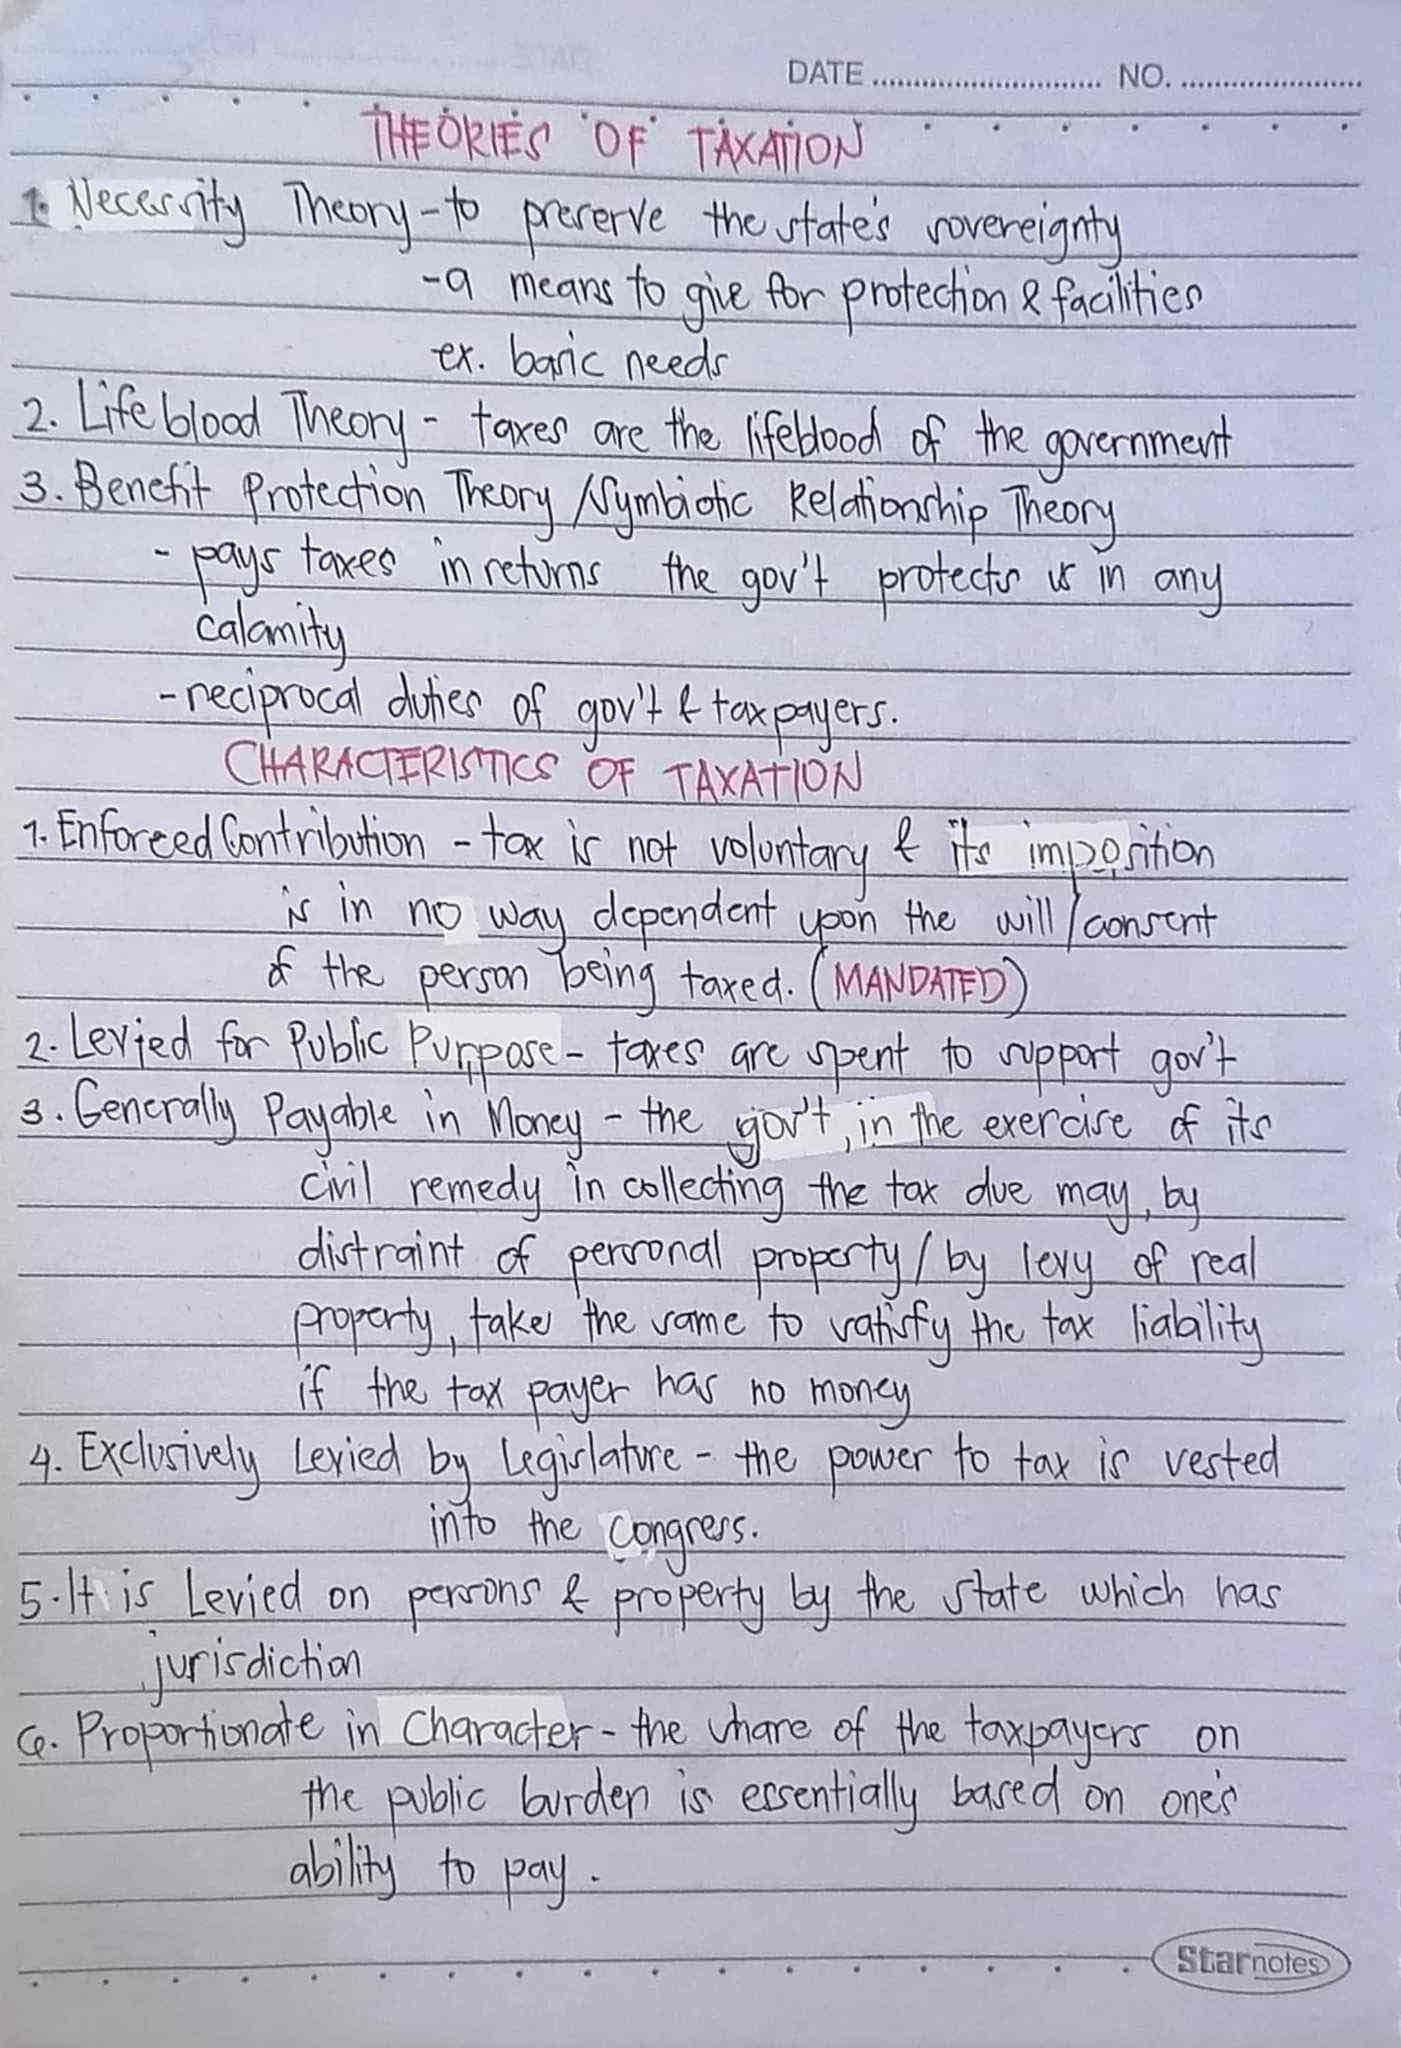 DATE ............................ NO. ......................
THEORIES OF TAXATION
1. Necessity Theory - to preserve the state's sovereignty
- a means to give for protection & facilities
ex. basic needs
2. Lifeblood Theory - taxes are the lifeblood of the government
3. Benefit Protection Theory / Symbiotic Relationship Theory
- pays taxes in returns the gov't protects us in any
calamity
- reciprocal duties of gov't & taxpayers.
CHARACTERISTICS OF TAXATION
1. Enforced Contribution - tax is not voluntary & its imposition
is in no way dependent upon the will/consent
of the person being taxed. (MANDATED)
2. Levied for Public Purpose - taxes are spent to support gov't
3. Generally Payable in Money - the gov't, in the exercise of its
civil remedy in collecting the tax due may, by
distraint of personal property / by levy of real
property, take the same to satisfy the tax liability
if the tax payer has no money
4. Exclusively Levied by Legislature - the power to tax is vested
into the Congress.
5. It is Levied on persons & property by the state which has
jurisdiction
6. Proportionate in Character - the share of the taxpayers on
the public burden is essentially based on one's
ability to pay.
Starnotes